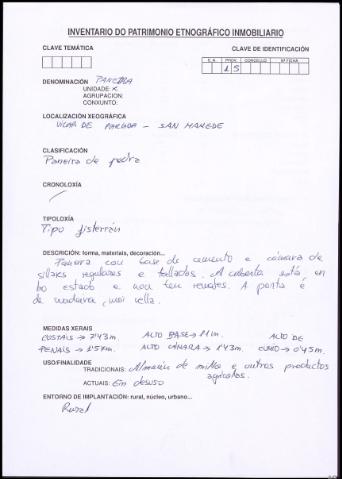 INVENTARIO DO PATRIMONIO ETNOGRÁFICO INMOBILIARIO
CLAVE TEMÁTICA
CLAVE DE IDENTIFICACIÓN
C.A. PROV. CONCELLO Nº FICHA
15
DENOMINACIÓN PANEIRA
UNIDADE: X
AGRUPACION:
CONXUNTO:
LOCALIZACIÓN XEOGRÁFICA
VILAR DE PARGOA - SAN MAMEDE
CLASIFICACIÓN
Paneira de pedra
CRONOLOXÍA
TIPOLOXÍA
Tipo fisterrán
DESCRICIÓN: forma, materiais, decoración...
Paneira con base de cemento e cámara de
sillares regulares e tallados. A cuberta está en
bo estado e non ten remates. A porta é
de madeira, moi vella.
MEDIDAS XERAIS
COSTAIS → 7'43 m. ALTO BASE → 1'1 m. ALTO DE
PENAIS → 1'57 m. ALTO CÁMARA → 1'43 m. CUMIO → 0'45 m.
USO/FINALIDADE
TRADICIONAIS: Almacén de millo e outros productos
agrícolas.
ACTUAIS: En desuso
ENTORNO DE IMPLANTACIÓN: rural, núcleo, urbano...
Rural